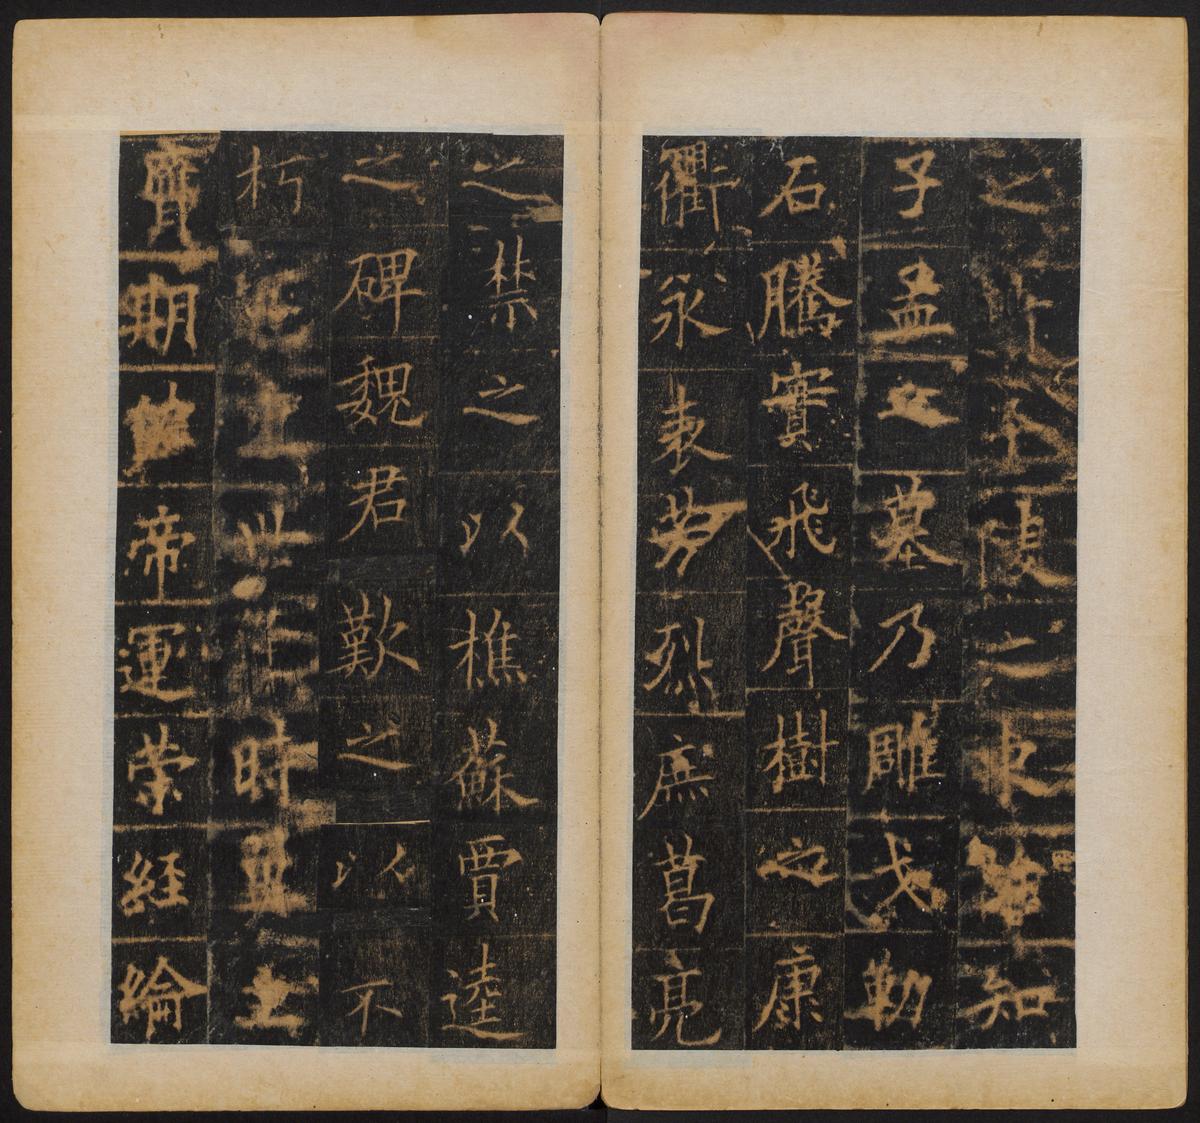 之王陵之東知
子孟之墓乃雕戈勒
石騰實飛聲樹之康
衢永表芳烈庶葛亮
之禁之以樵蘇賈逵
之碑魏君歎之以不
朽世時
期帝運榮經綸